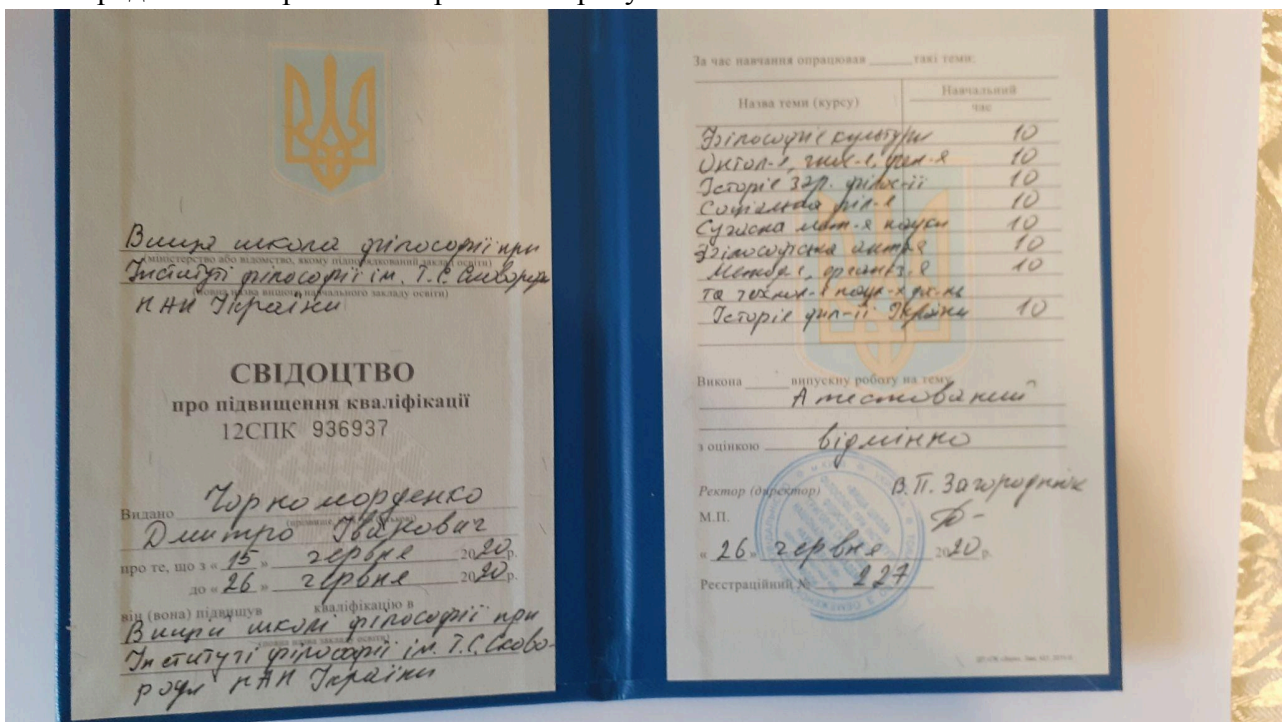 Вища школа філософії при
(міністерство або відомство, якому підпорядкований заклад освіти)
Інституті філософії ім. Г.С. Сковороди
(повна назва вищого навчального закладу освіти)
НАН України
СВІДОЦТВО
про підвищення кваліфікації
12СПК 936937
Видано Чорноморденко
Дмитро Іванович
про те, що з « 15 » червня 2020 р.
до « 26 » червня 2020 р.
він (вона) підвищував кваліфікацію в
Вищій школі філософії при
(повна назва закладу освіти)
Інституті філософії ім. Г.С. Сково-
роди НАН України
За час навчання опрацював такі теми:
Назва теми (курсу) Навчальний час
Філософія культури 10
Онтол-я, гнос-я, фен-я 10
Історія зар. філос-ії 10
Соціальна філ-я 10
Сучасна мет-я науки 10
Філософська антр-я 10
Метод-я, організ-я 10
та технол-я наук-х дж-нь
Історія філ-ії України 10
Викона випускну роботу на тему
Атестований
з оцінкою відмінно
Ректор (директор) В.П. Загороднюк
М.П.
« 26 » червня 2020 р.
Реєстраційний № 227